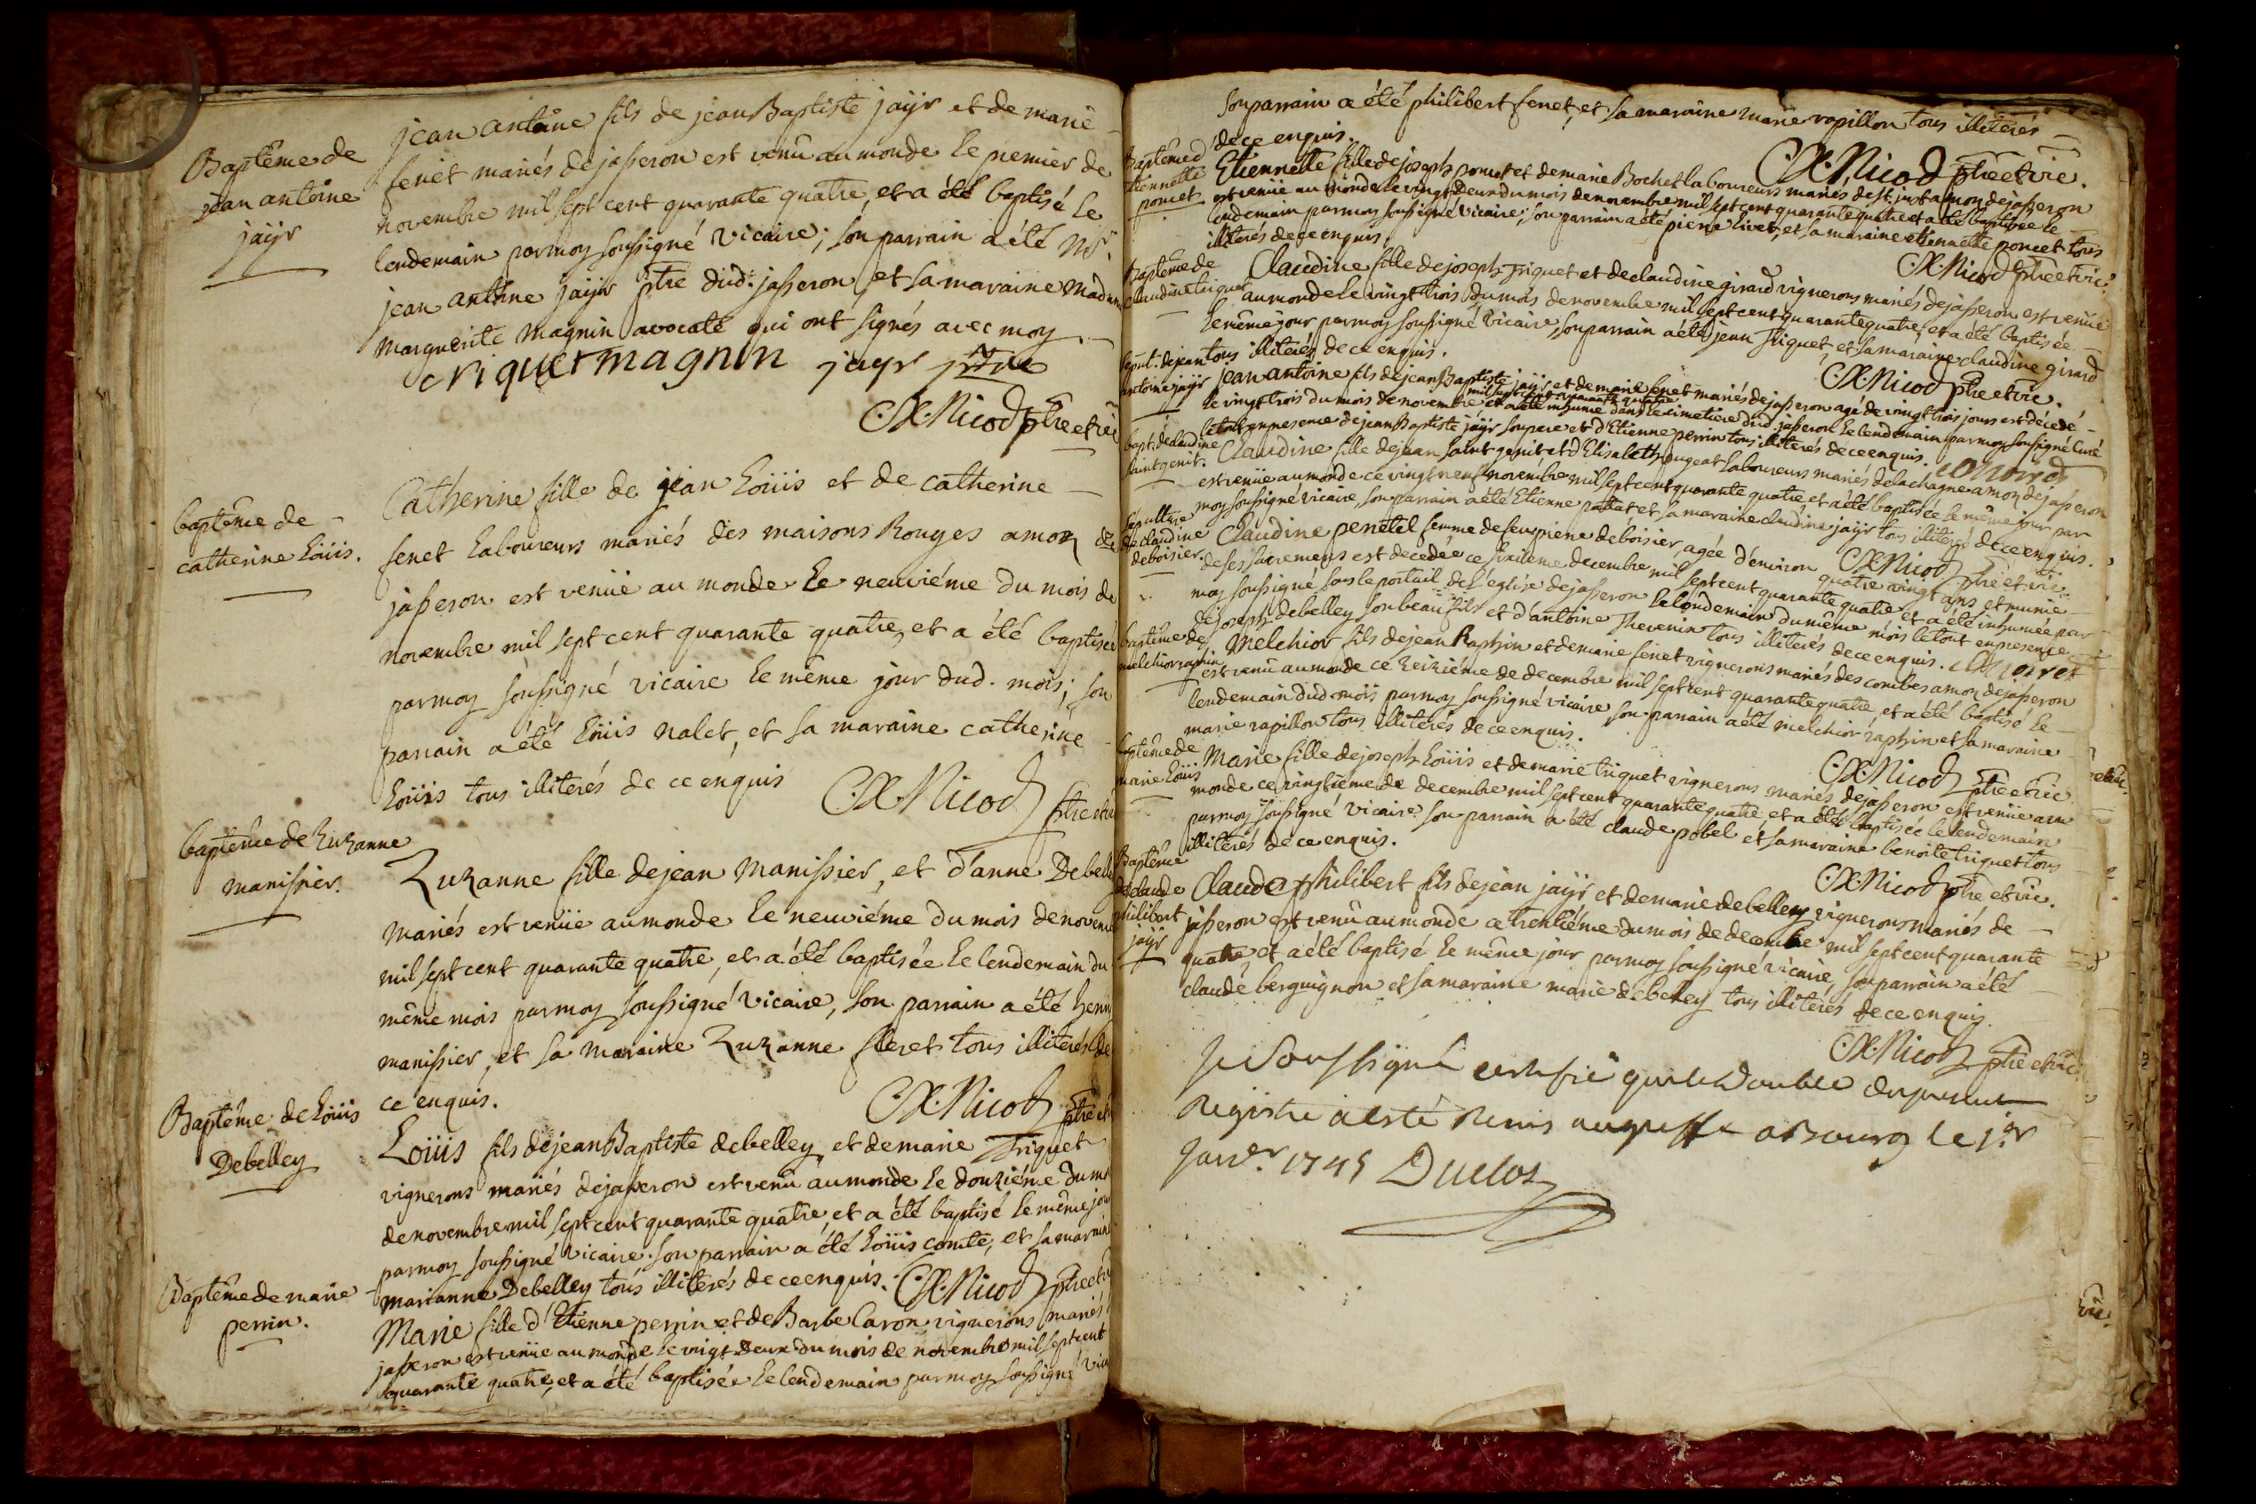 Baptême de
jean antoine
jayr
jean antoine fils de jean Baptiste jayr et de marie
fenet mariés de jasseron est venû au monde le premier de
novembre mil sept cent quarante quatre, et a été baptisé le
lendemain par moy soussigné vicaire; son parrain a été Mr.
jean antoine jayr ptre dud: jasseron et sa maraine madame
marguerite magnin avocate qui ont signés avec moy
criquet magnin jayr ptre
C.X.Nicod ptre et vic
baptême de
catherine Loüis.
Catherine fille de jean Loüis et de catherine
fenet laboureurs mariés des maisons Rouges amon de
jasseron est venüe au monde le neuviéme du mois de
novembre mil sept cent quarante quatre, et a été baptisée
par moy soussigné vicaire le même jour dud. mois; son
parrain a été Loüis nalet, et sa maraine catherine
Loüis tous illiterés de ce enquis C.X.Nicod ptre et vic
baptême de Zuzanne
manissier.
Zuzanne fille de jean manissier, et d'anne Debelley
mariés est venüe au monde le neuviéme du mois de novembre
mil sept cent quarante quatre, et a été baptisée le lendemain du
même mois par moy soussigné vicaire, son parrain a été henry
manissier, et sa maraine Zuzanne fleret tous illiterés de
ce enquis. C.X.Nicod ptre et
Baptême de Loüis
Debelley
Loüis fils de jean Baptiste debelley et de marie Triquet
vignerons mariés de jasseron est venû au monde le douziéme du mois
de novembre mil sept cent quarante quatre, et a été baptisé le même jour
par moy soussigné vicaire; son parrain a été Loüis comte, et sa maraine
marianne Debelley tous illiterés de ce enquis. C.X.Nicod ptre et vic
Baptême de marie
perrin.
Marie fille d'Etienne perrin et de Barbe Caron vignerons mariés
jasseron est venüe au monde le vingt deux du mois de novembre mil sept cent
quarante quatre, et a été baptisée le lendemain par moy soussigné vicaire
son parrain a été philibert fenet, et sa maraine marie rapillon tous illiterés
de ce enquis. C.X.Nicod ptre et vic.
Baptême d
Etiennette
poncet
Etiennette fille de joseph poncet et de marie Bochet laboureurs mariés de st. just amon de jasseron
est venüe au monde le vingt deux du mois de novembre mil sept cent quarante quatre et a été baptisée le
lendemain par moy soussigné vicaire; son parrain a été pierre livet, et sa maraine etiennette poncet tous
illiterés de ce enquis. C.X.Nicod ptre et vic.
Baptême de
claudine triquet
Claudine fille de joseph Triquet et de claudine girard vignerons mariés de jasseron est venüe
au monde le vingt trois du mois de novembre mil sept cent quarante quatre, et a été baptisée
le même jour par moy soussigné vicaire, son parrain a été jean Triquet, et sa maraine claudine girard
tous illiterés de ce enquis. C.X.Nicod ptre et vic.
sepult. de jean
antoine jayr
Jean antoine fils de jean Baptiste jayr et de marie fenet mariés de jasseron agé de vingt trois jours est décédé
mil sept cent quarante quatre
le vingt trois du mois de novembre et a été inhumé dans le cimetiere dud. jasseron le lendemain par moy soussigné curé
le tout en presence de jean Baptiste jayr son pere et d'Etienne perrin tous illiterés de ce enquis.
bapt. de claudine
saint genit.
Claudine fille de jean saint genit et d'Elisabeth pugeat laboureurs mariés de la chagne amon de jasseron
est venüe au monde ce vingt neuf novembre mil sept cent quarante quatre, et a été baptisée le même jour par
moy soussigné vicaire, son parrain a été Etienne pattat et sa maraine claudine jayr tous illiterés de ce enquis.
C.X.Nicod ptre et vic.
sepulture
de claudine
deboisier.
Claudine penetel femme de feu pierre deboisier, agée d'environ quatre vingt ans et munie
de ses sacremens est decedée ce sixieme decembre mil sept cent quarante quatre et a été inhumée par
moy soussigné sous le portail de l'eglise de jasseron le lendemain du même mois le tout en presence
de joseph debelley son beau fils et d'antoine Thevenin tous illiterés de ce enquis.
baptême de
melchior raphin
Melchior fils de jean Raphin et de marie fenet vignerons mariés des combes amon de jasseron
est venû au monde ce treiziéme de decembre mil sept cent quarante quatre et a été baptisé le
lendemain dud. mois par moy soussigné vicaire son parrain a été melchior raphin et sa maraine
marie rapillon tous illiterés de ce enquis. C.X.Nicod ptre et vic
baptême de
marie Loüis
Marie fille de joseph Loüis et de marie triquet vignerons mariés de jasseron est venüe au
monde ce vingtieme de decembre mil sept cent quarante quatre et a été baptisée le lendemain
par moy soussigné vicaire son parrain a été claude pobel et sa maraine benoite triquet tous
illiterés de ce enquis. C.X.Nicod ptre et vic.
Baptême
de claude
philibert
jayr
Claude philibert fils de jean jayr, et de marie debelley vignerons mariés de
jasseron est venû au monde ce trentiéme du mois de decembre mil sept cent quarante
quatre, et a été baptisé le même jour par moy soussigné vicaire, son parrain a été
claude berguignon et sa maraine marie debelley tous illiterés de ce enquis
C.X.Nicod ptre et vic.
Je Soussigné certifie que le Double du present
Registre a esté remis au greffe a Bourg le 1er
Janvr. 1745 Duclos